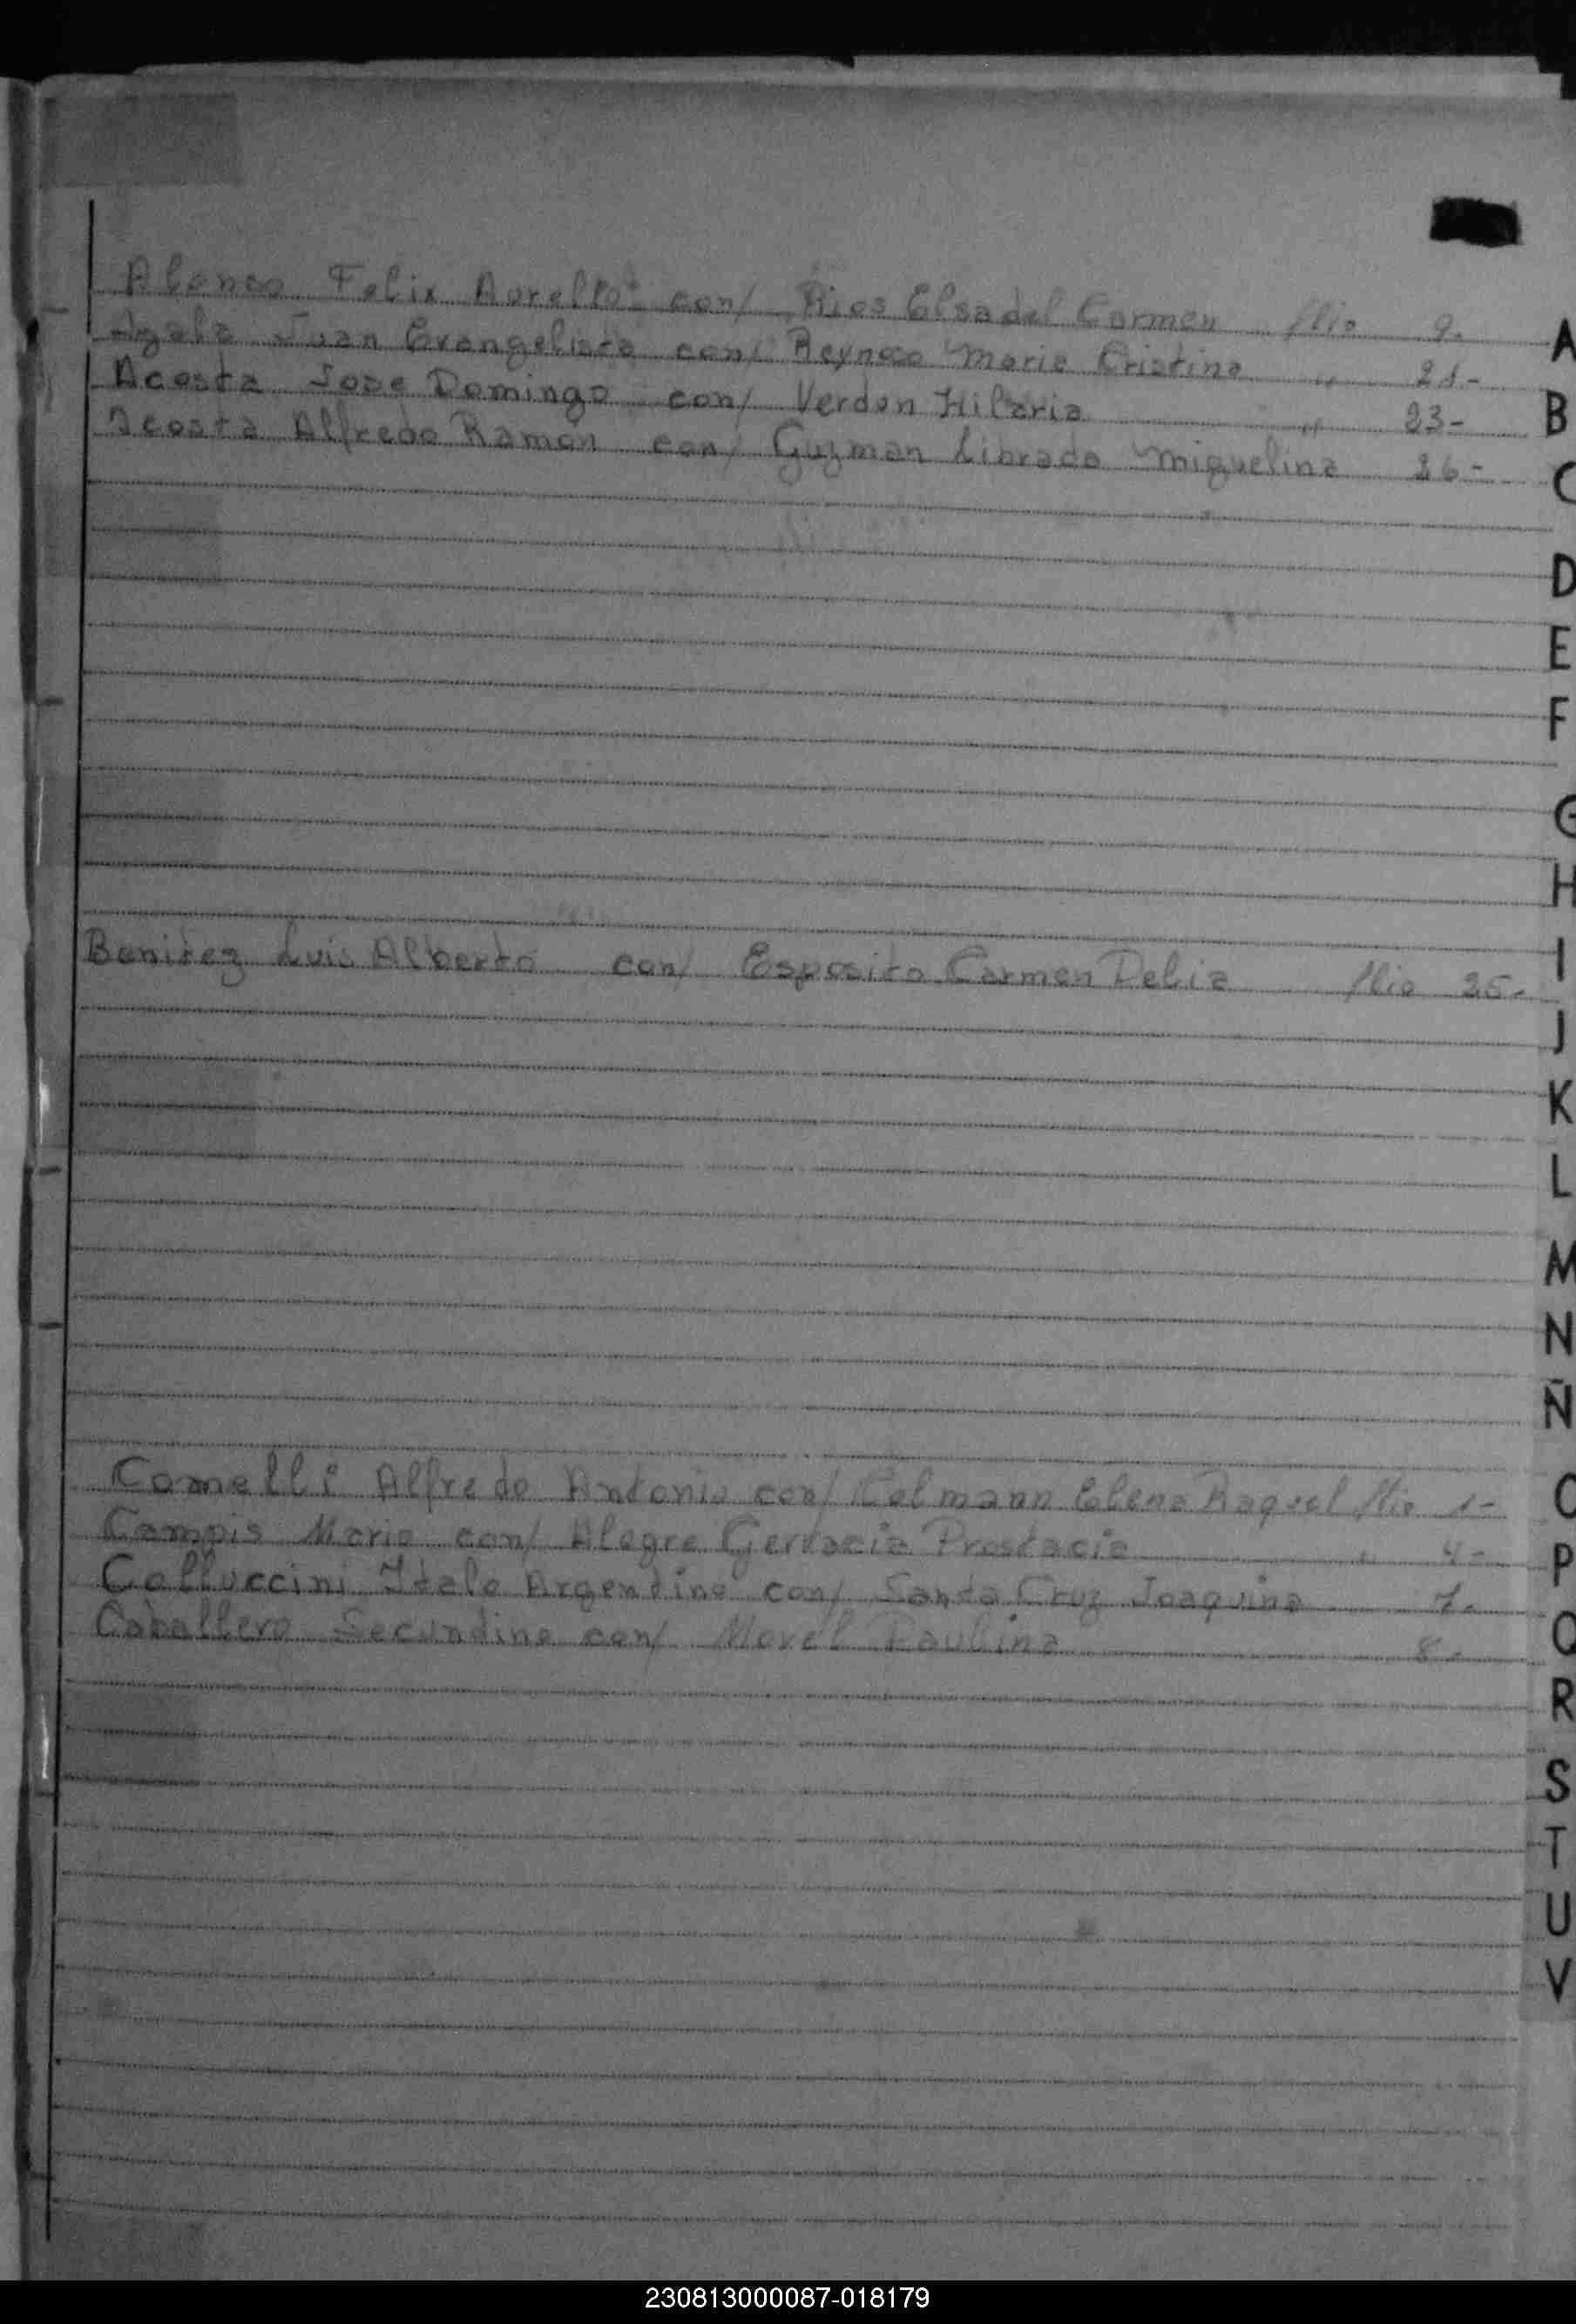 Alonso Felix Aurelio con/ Rios Elsa del Carmen flio 9.
Ayala Juan Evangelista con/ Reynoso Maria Cristina " 21-
Acosta Jose Domingo con/ Verdon Hilaria " 23-
Acosta Alfredo Ramon con/ Guzman Librada Miguelina 26-
Benitez Luis Alberto con/ Esposito Carmen Delia flio 25-
Comelli Alfredo Antonio con/ Colmann Elena Raquel flio 1-
Campis Mario con/ Alegre Gervacia Prostacia " 4-
Colluccini Italo Argentino con/ Santa Cruz Joaquina 7-
Caballero Secundino con/ Morel Paulina 8-
A
B
C
D
E
F
G
H
I
J
K
L
M
N
Ñ
O
P
Q
R
S
T
U
V
230813000087-018179